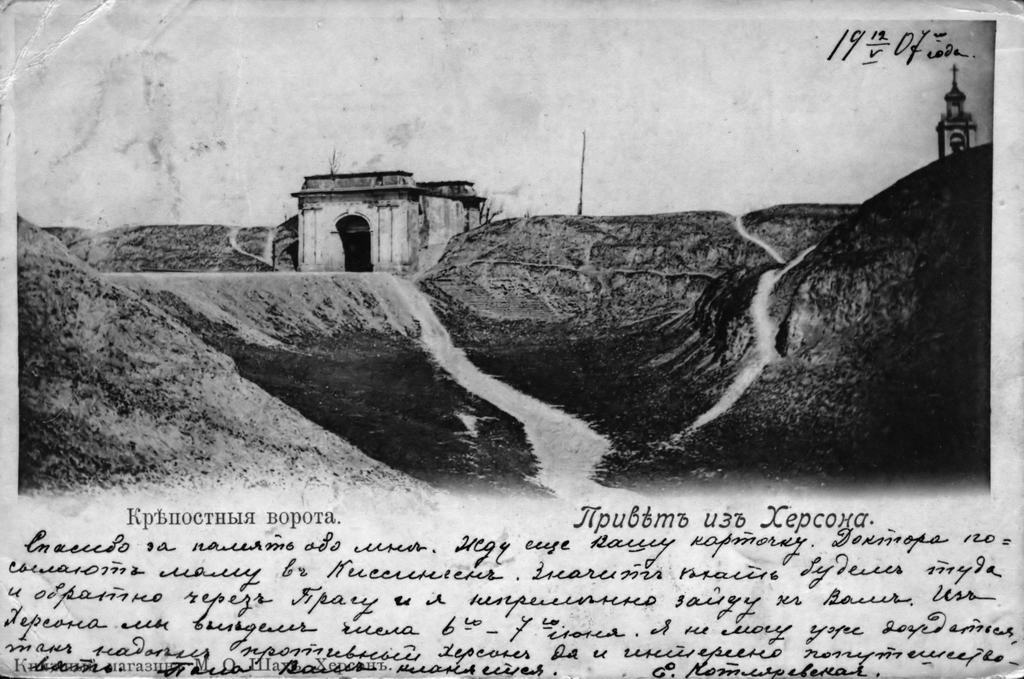 19 12/V 07 го года.
Крѣпостныя ворота.
Привѣтъ изъ Херсона.
Спасибо за память обо мнѣ. Жду еще вашу карточку. Доктора по=
сылаютъ маму въ Киссингенъ. Значитъ ѣхать будемъ туда
и обратно черезъ Прагу и я непремѣнно зайду къ Вамъ. Изъ
Херсона мы выѣдемъ числа 6го – 7го іюня. Я не могу уже дождаться,
такъ надоѣлъ противный Херсонъ да и интересно попутешество-
вать. Папа Вамъ кланяется. Е. Котляревская.
Книжный магазинъ М. О. Шахъ, Херсонъ.